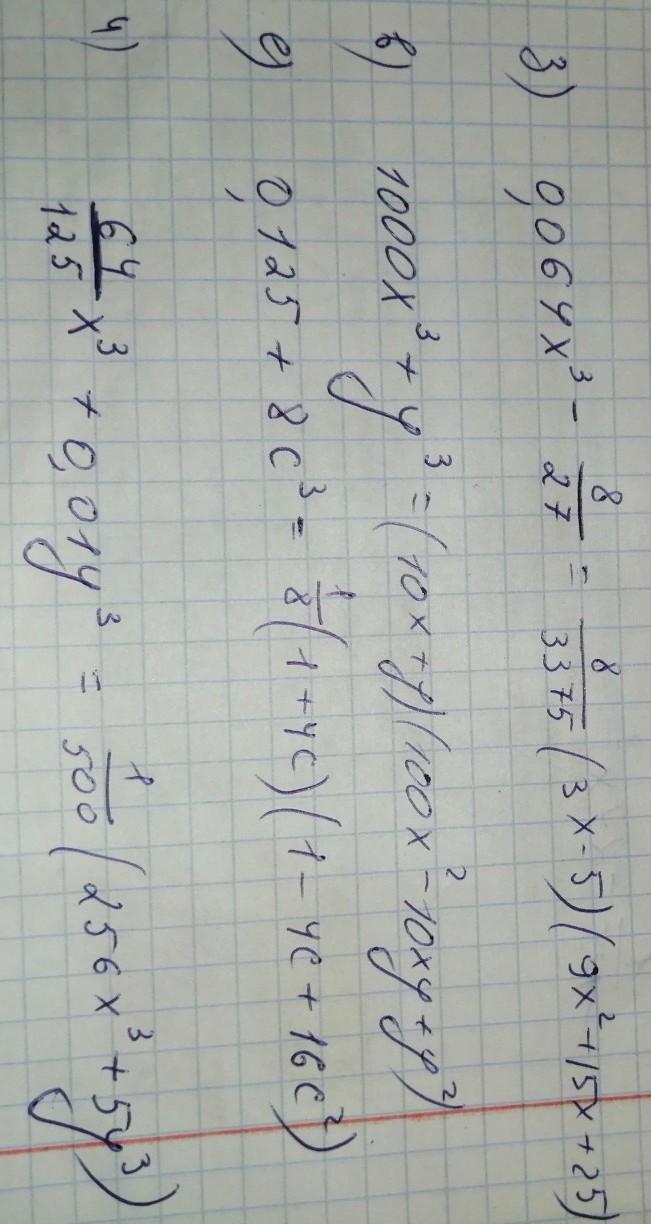 з) 0,064x³ - 8/27 = 8/3375 (3x - 5)(9x² + 15x + 25)
в) 1000x³ + y³ = (10x + y)(100x² - 10xy + y²)
е) 0,125 + 8c³ = 1/8 (1 + 4c)(1 - 4c + 16c²)
ч) 64/125 x³ + 0,01y³ = 1/500 (256x³ + 5y³)